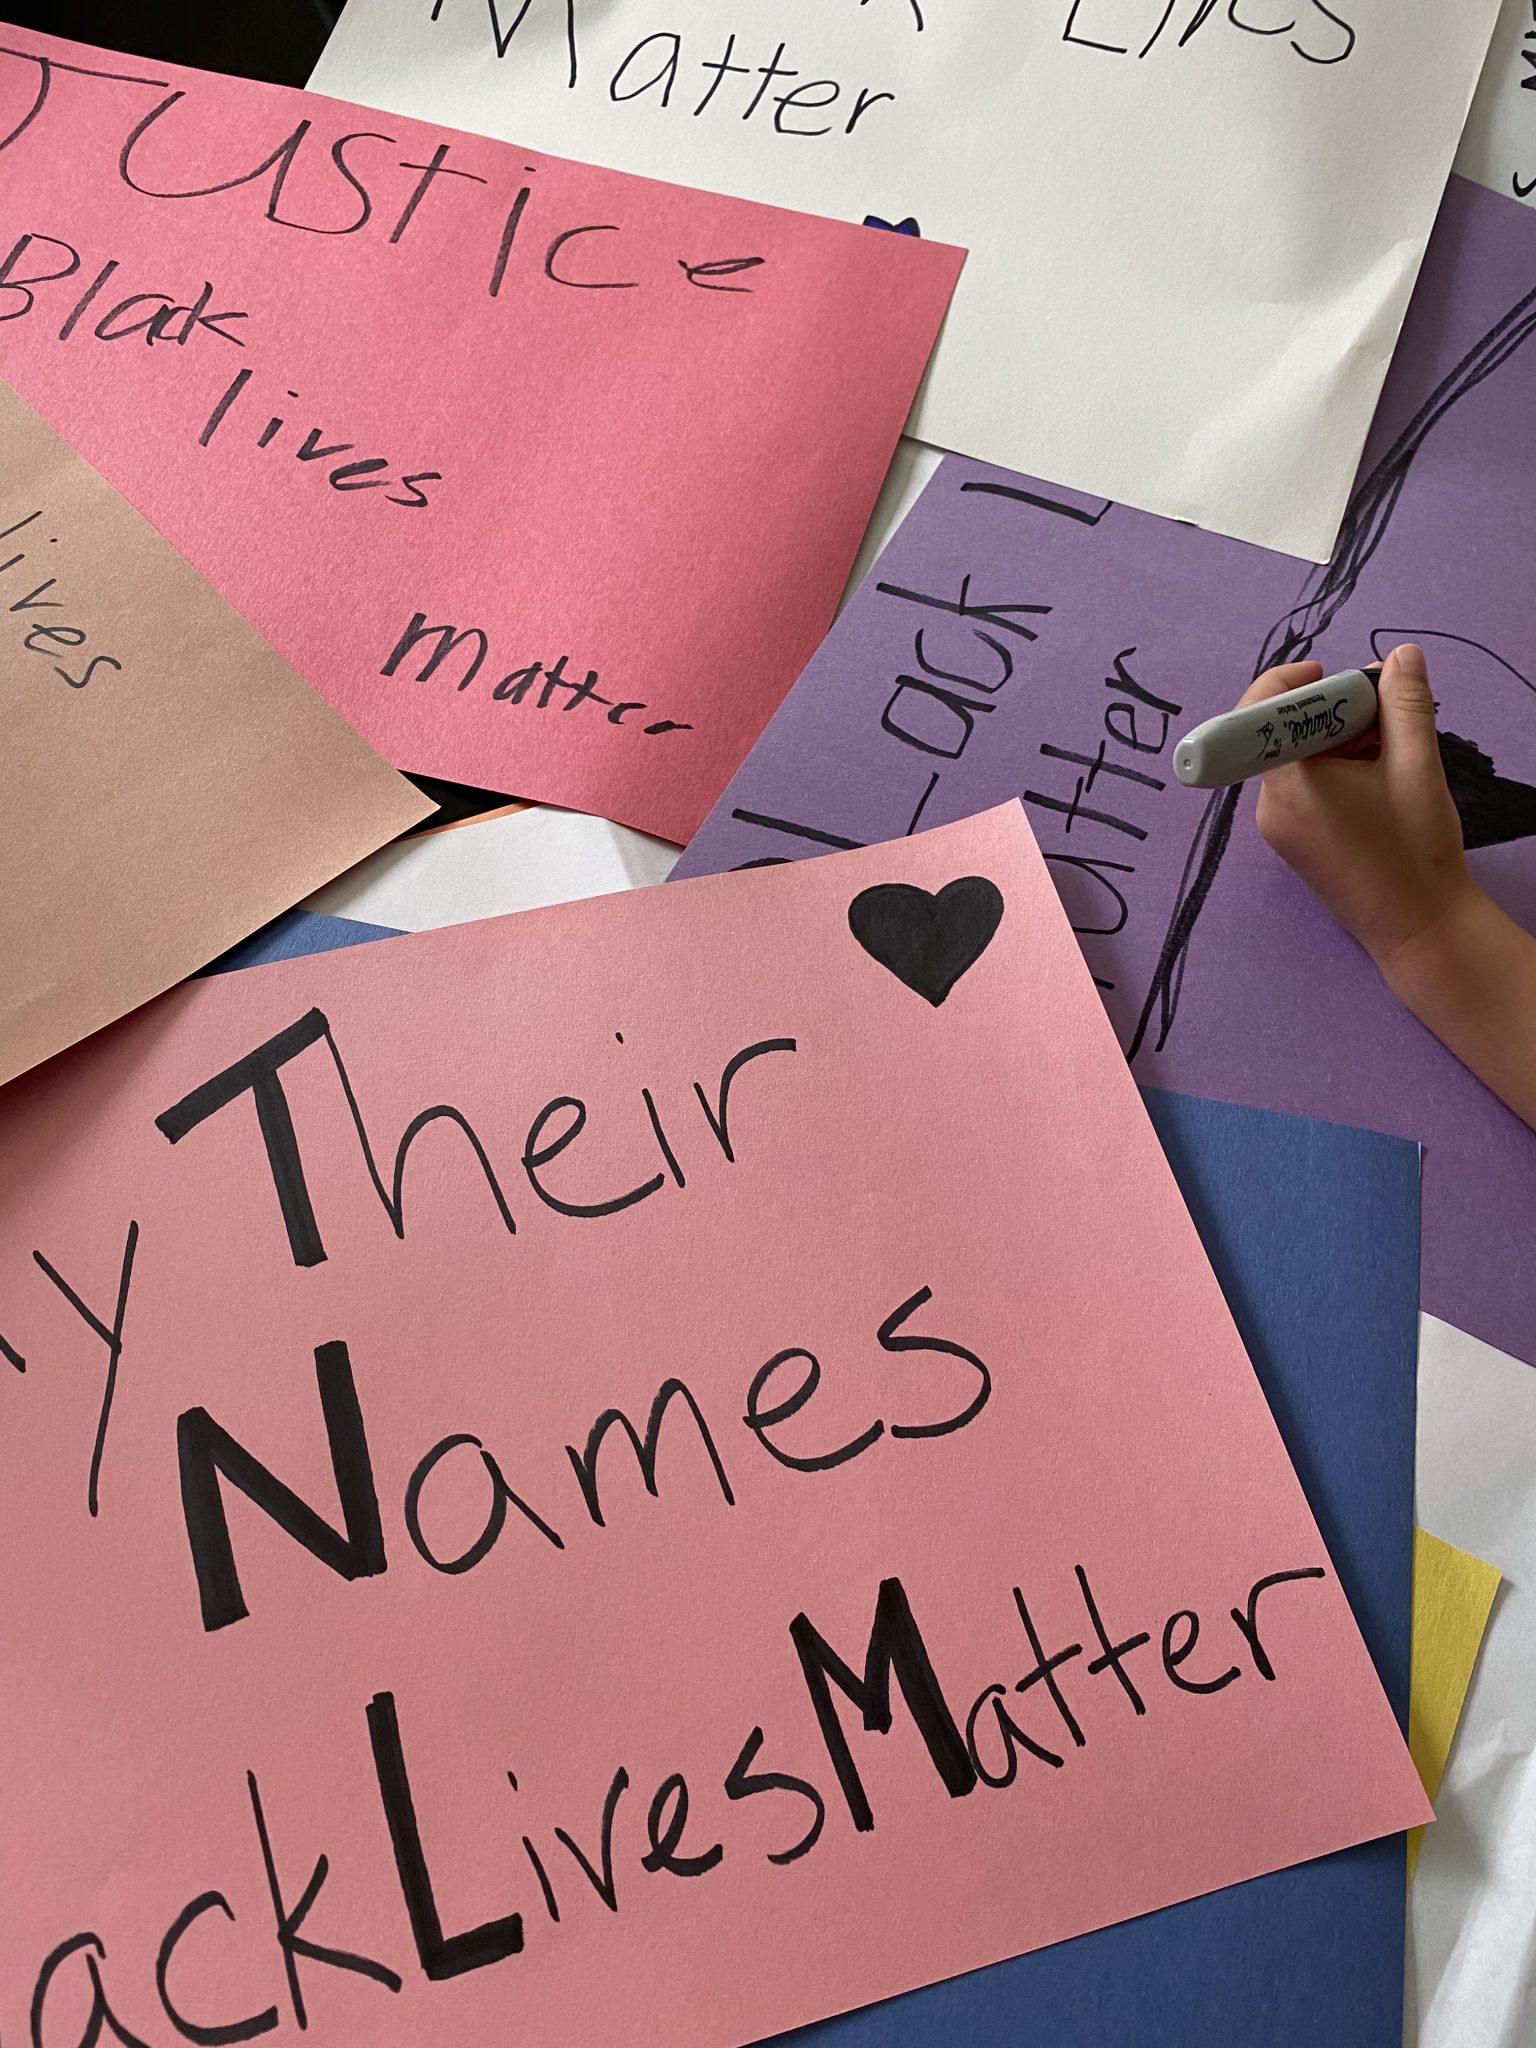 Lives
Matter
Justice
Black
lives
matter
lives
Black L
matter
Sharpie
Their
Names
ackLivesMatter